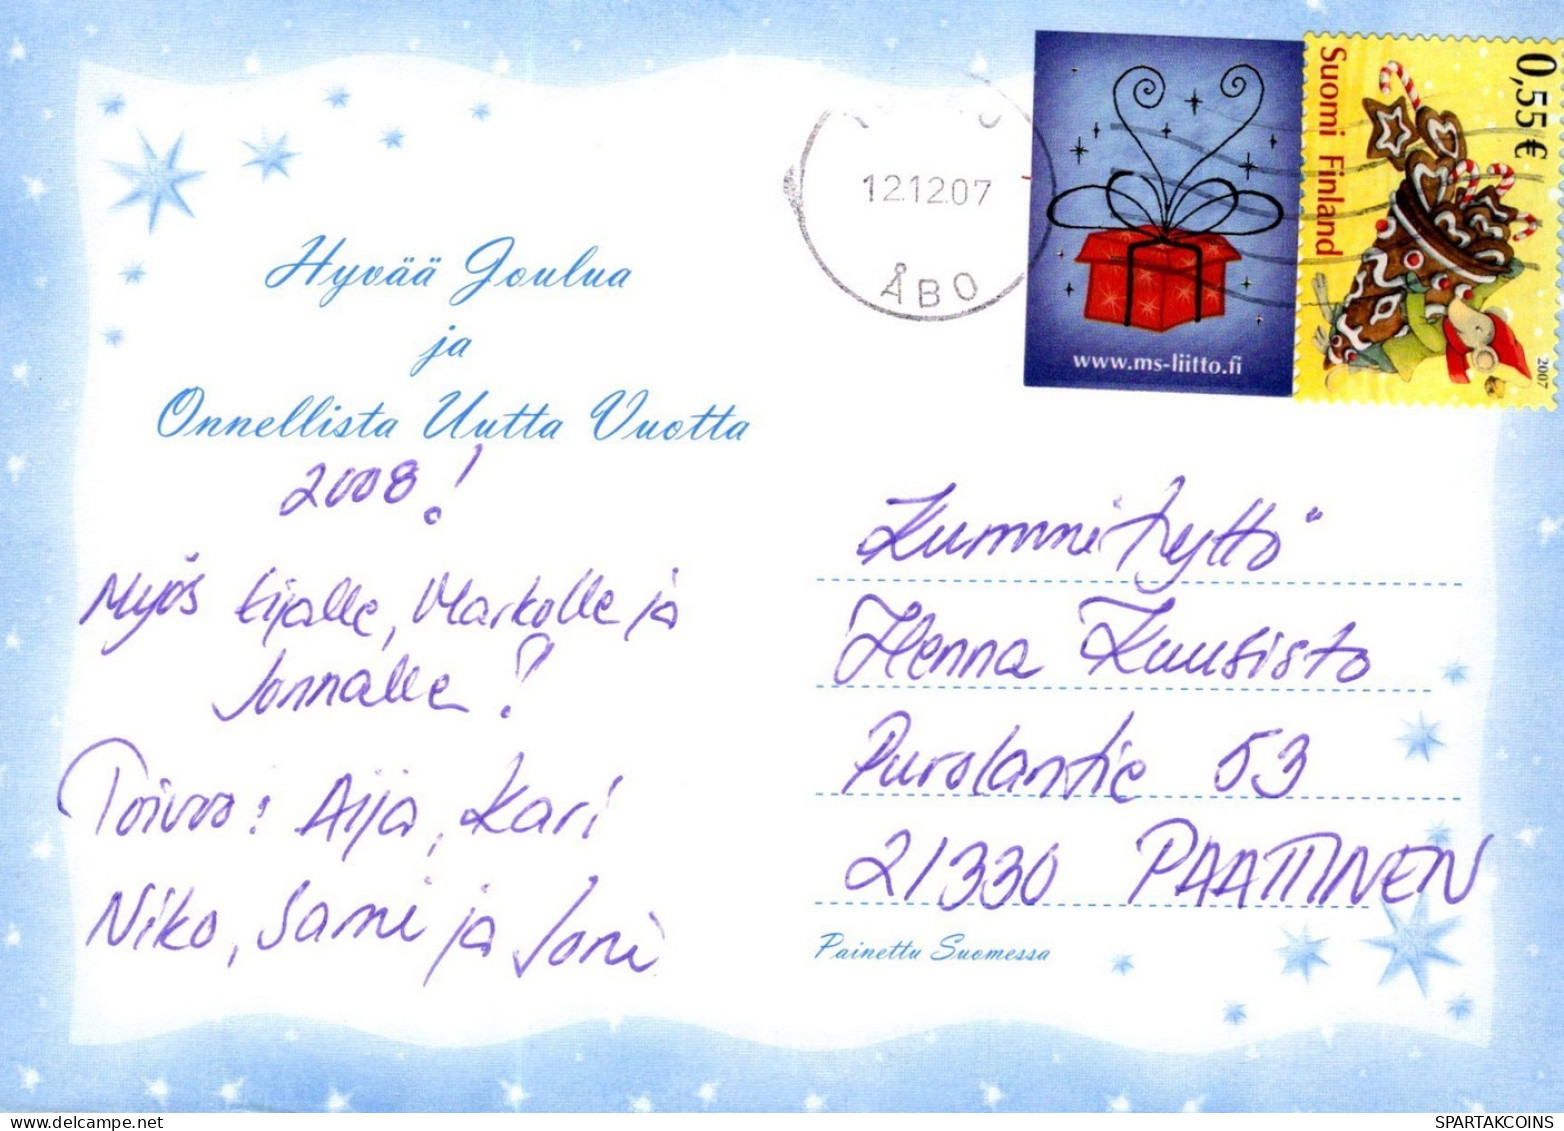 12.12.07
ÅBO
www.ms-liitto.fi
0,55 €
Suomi Finland
2007
Hyvää Joulua
ja
Onnellista Uutta Vuotta
2008!
Myös Eijalle, Markolle ja
Jonnalle!
Toivoo: Aija, Kari
Niko, Sami ja Joni
"Kummityttö"
Henna Kuusisto
Purolantie 53
21330 PAATTINEN
Painettu Suomessa
SPARTAKCOINS
delcampe.net